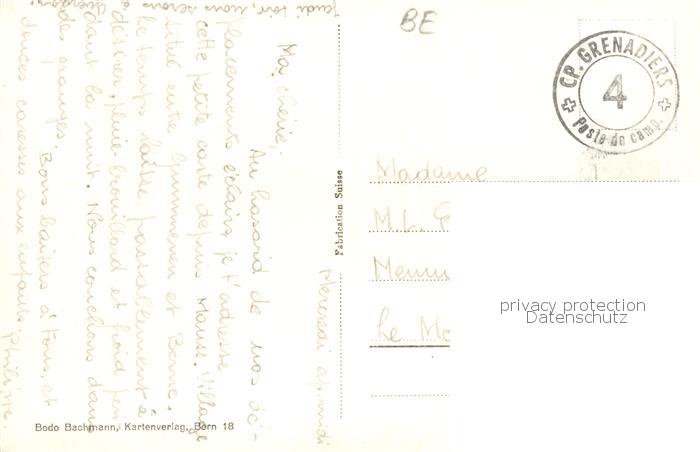 Mercredi ap. midi
Ma chérie,
Au hasard de nos dé-
placements éclairs, je t'adresse
cette petite carte depuis Mauss. Village
situé entre Gummenen et Berne.
Le temps laisse passablement à
désirer, pluie brouillard et froid pen
dant la nuit. Nous couchons dans
des granges.
Bons baisers à tous, et
douces caresses aux enfants.
Jeudi soir, nous serons à
BE
CP. GRENADIERS
4
Poste de camp.
Madame
M. L.
Le
Fabrication Suisse
Bodo Bachmann, Kartenverlag, Bern 18
privacy protection
Datenschutz